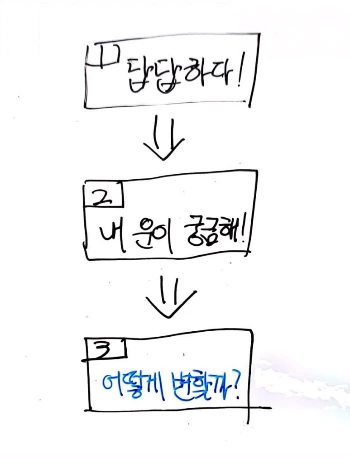 1
답답하다!
2
내 운이 궁금해!
3
어떻게 변할까?